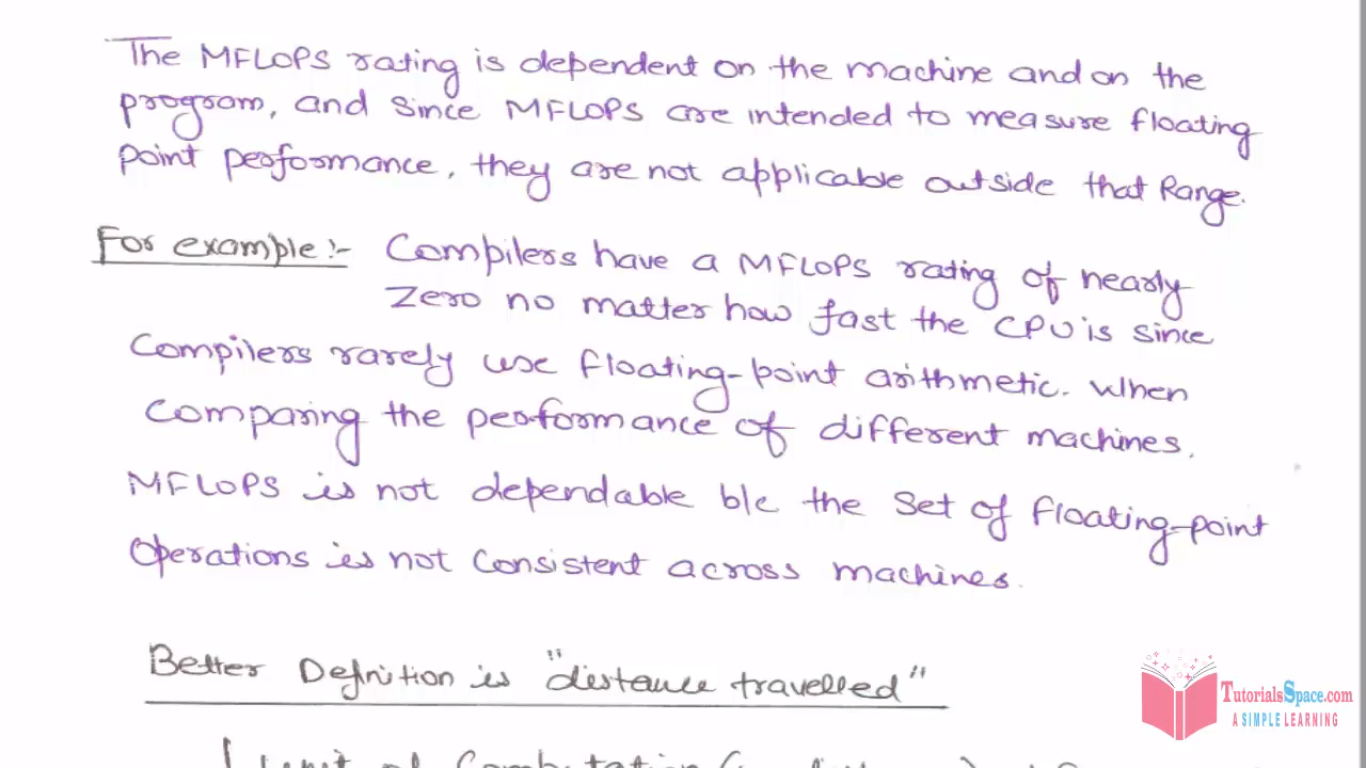 The MFLOPS rating is dependent on the machine and on the
program, and since MFLOPS are intended to measure floating
point performance, they are not applicable outside that Range.
For example :- Compilers have a MFLOPS rating of nearly
Zero no matter how fast the CPU is since
Compilers rarely use floating-point arithmetic. When
Comparing the performance of different machines.
MFLOPS is not dependable b/c the set of floating-point
Operations is not consistent across machines.
Better Definition is "distance travelled"
TutorialsSpace.com
A SIMPLE LEARNING